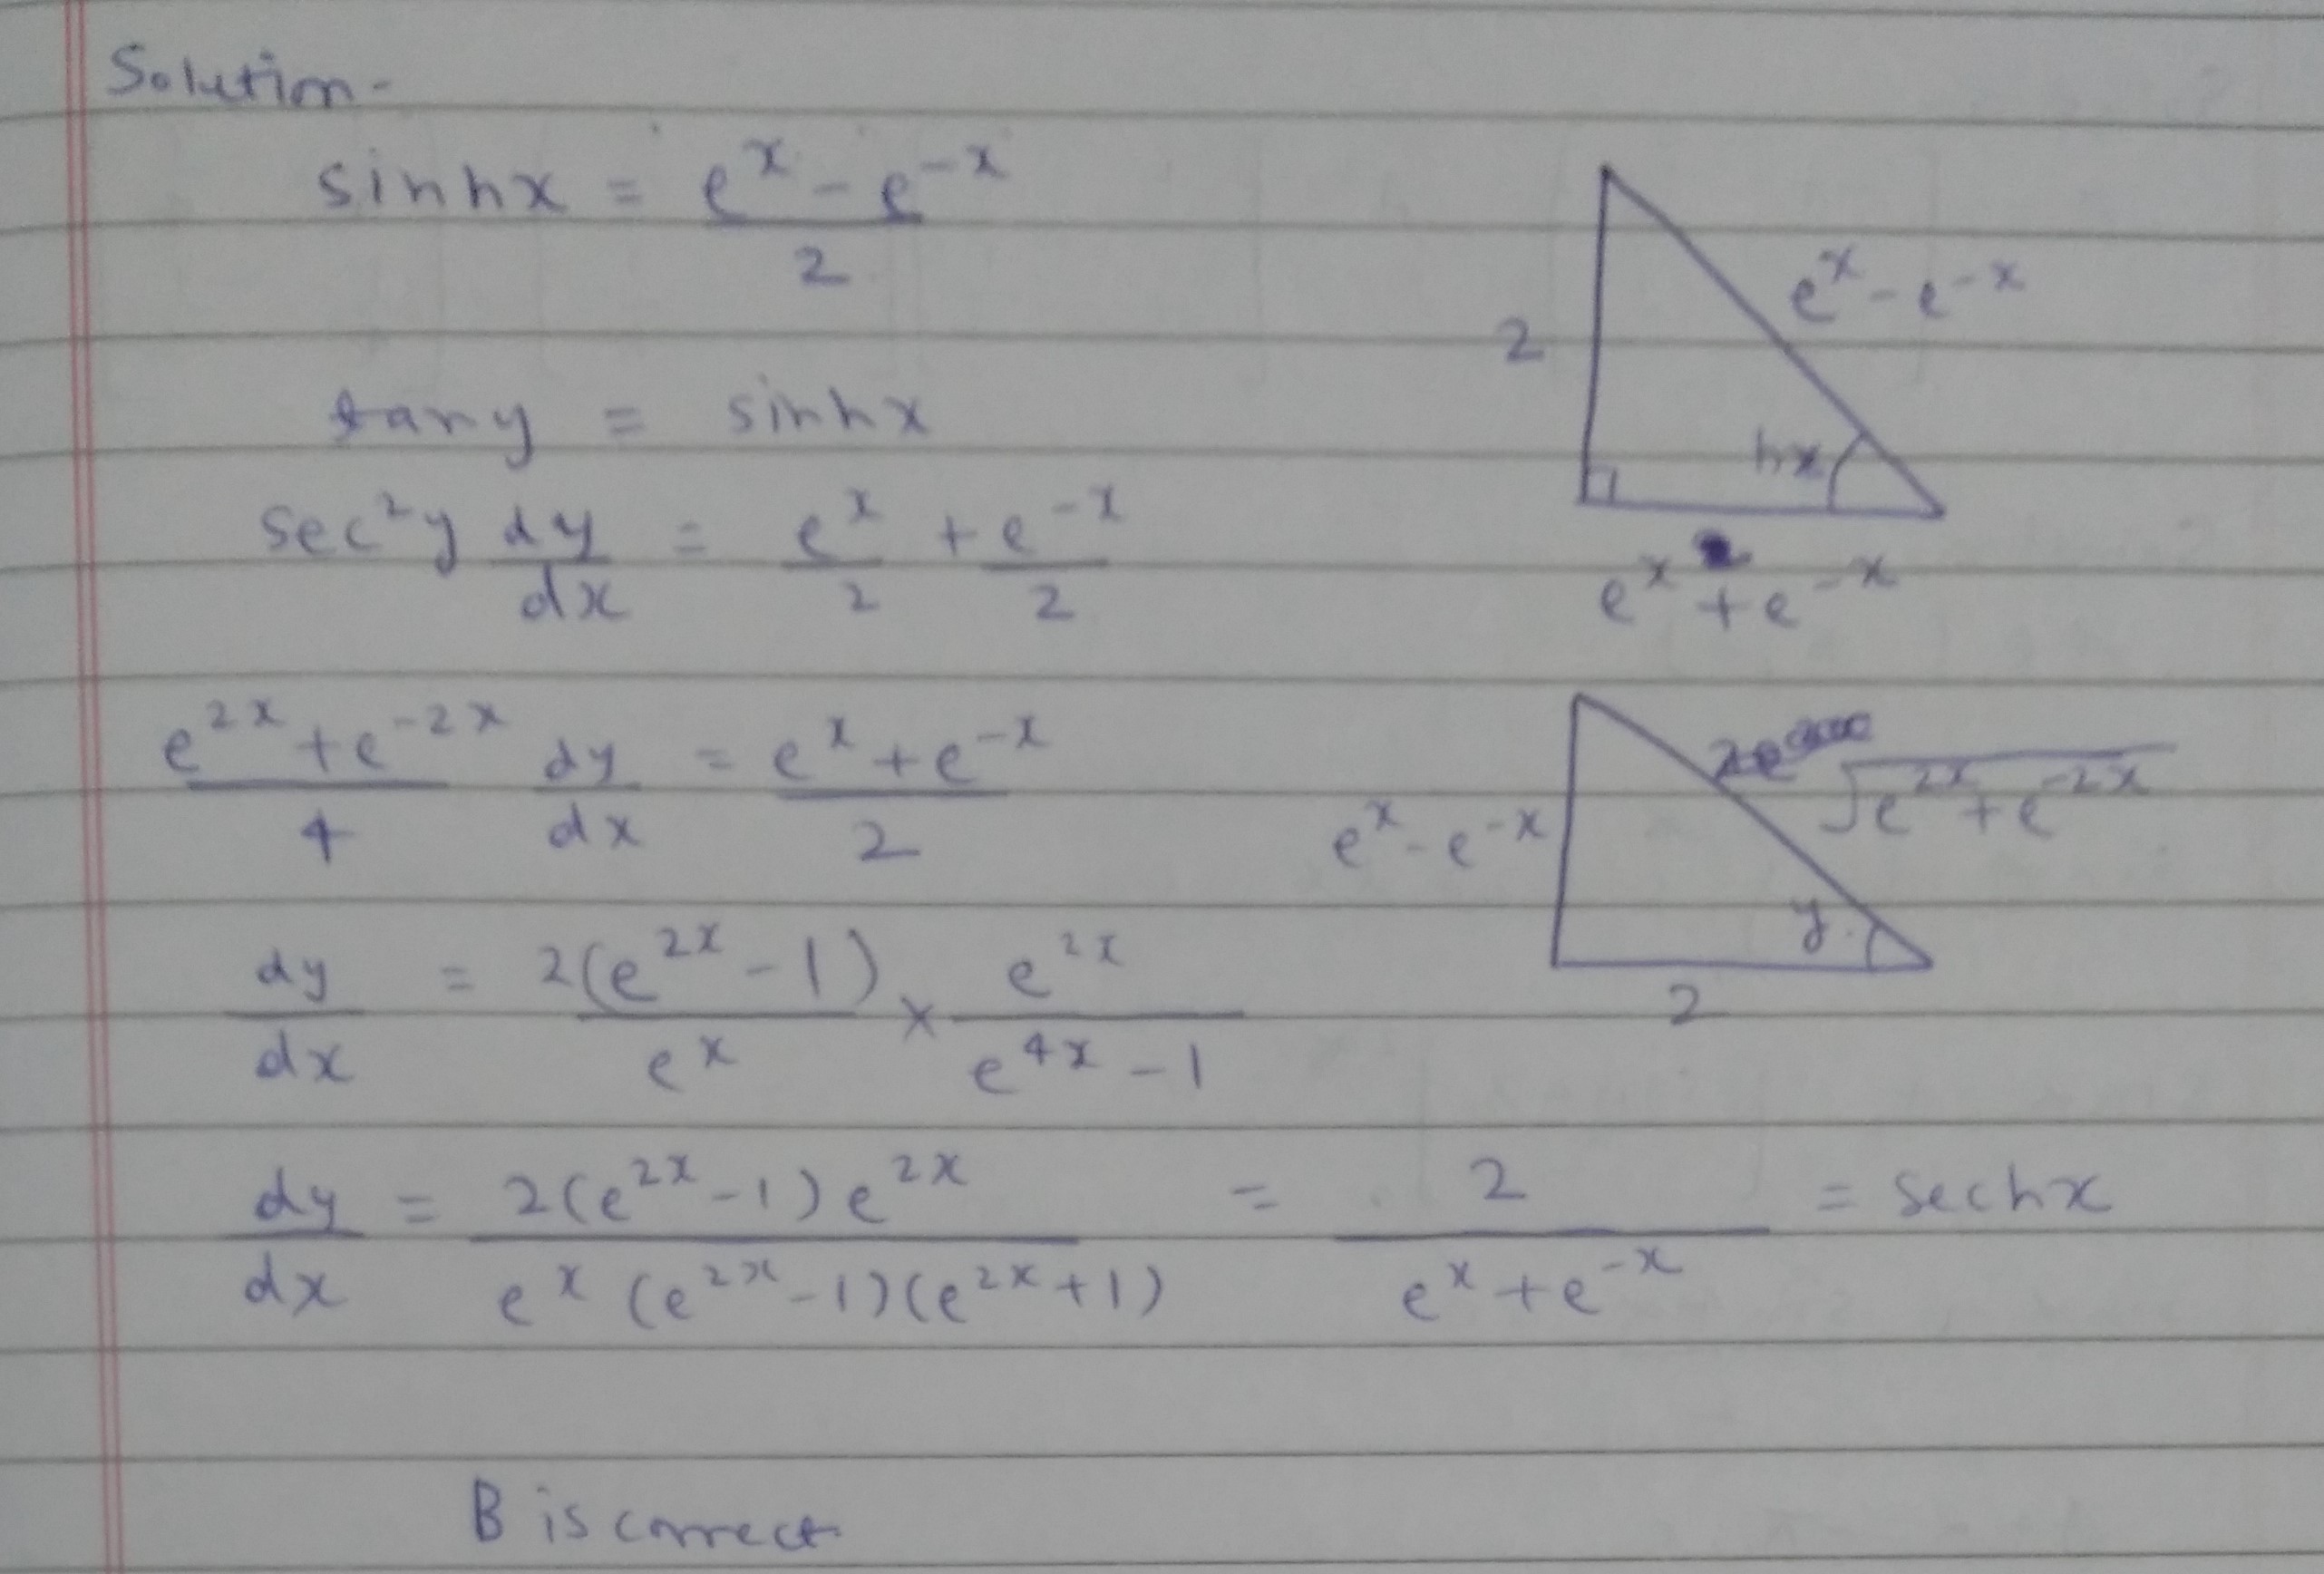 Solution-
sinhx = e^x - e^-x / 2
tany = sinhx
sec²y dy/dx = e^x/2 + e^-x/2
e^2x + e^-2x / 4 dy/dx = e^x + e^-x / 2
dy/dx = 2(e^2x - 1) / e^x × e^2x / e^4x - 1
dy/dx = 2(e^2x - 1) e^2x / e^x (e^2x - 1)(e^2x + 1) = 2 / e^x + e^-x = sechx
B is correct
2
e^x - e^-x
hx
e^x + e^-x
√e^2x + e^-2x
e^x - e^-x
y
2